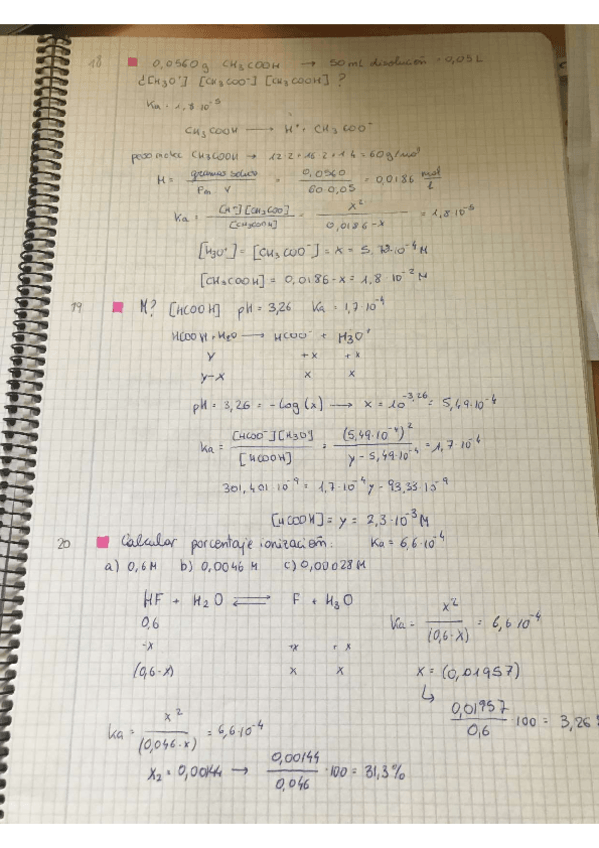 18 0,0560g CH3COOH → 50 mL disolución = 0,05 L
¿[H3O+] [CH3COO-] [CH3COOH] ?
Ka = 1,8·10^-5
CH3COOH → H+ + CH3COO-
peso molec CH3COOH → 12·2+16·2+1·4 = 60 g/mol
M = gramos soluto / Pm · V = 0,0560 / 60·0,05 = 0,0186 mol/l
Ka = [H+][CH3COO] / [CH3COOH] = x^2 / 0,0186-x = 1,8·10^-5
[H3O+] = [CH3COO-] = x = 5,78·10^-4 M
[CH3COOH] = 0,0186-x = 1,8·10^-2 M
19 M? [HCOOH] pH = 3,26 Ka = 1,7·10^-4
HCOOH + H2O → HCOO- + H3O+
y +x +x
y-x x x
pH = 3,26 = -log(x) → x = 10^-3,26 = 5,49·10^-4
Ka = [HCOO-][H3O] / [HCOOH] = (5,49·10^-4)^2 / y - 5,49·10^-4 = 1,7·10^-4
301,401·10^-9 = 1,7·10^-4 y - 93,33·10^-9
[HCOOH] = y = 2,3·10^-3 M
20 Calcular porcentaje ionización: Ka = 6,6·10^-4
a) 0,6M b) 0,0046 M c) 0,00028M
HF + H2O ⇌ F + H3O
0,6
-x +x +x
(0,6-x) x x
Ka = x^2 / (0,6-x) = 6,6·10^-4
x = (0,01957)
↳ 0,01957 / 0,6 ·100 = 3,26
Ka = x^2 / (0,046-x) = 6,6·10^-4
x2 = 0,00144 → 0,00144 / 0,046 ·100 = 31,3%